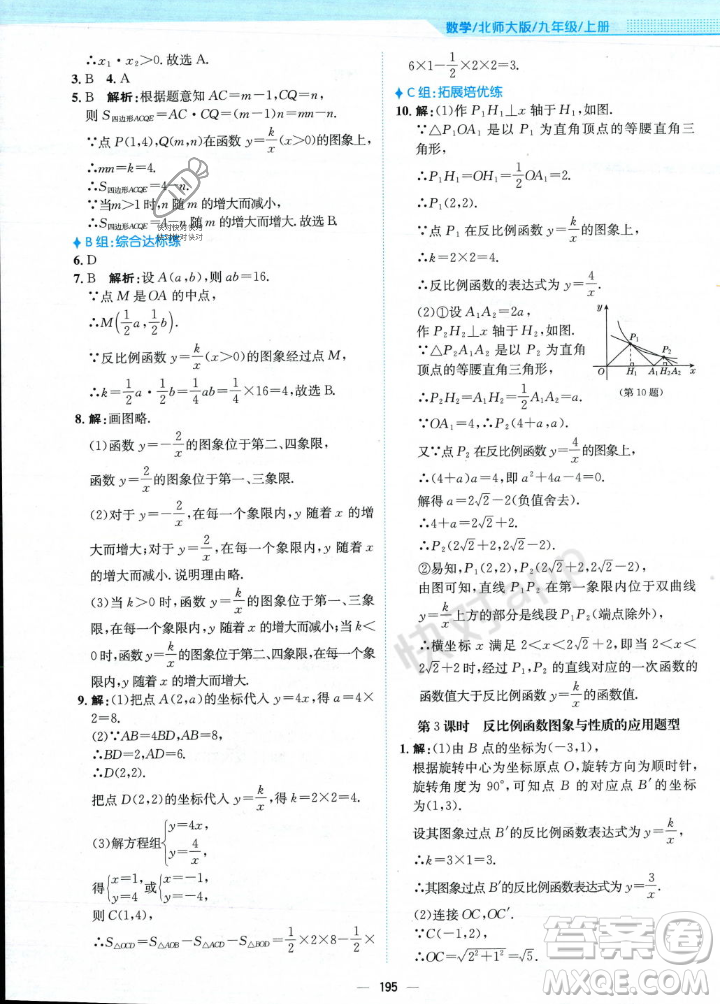 数学/北师大版/九年级/上册
∴x₁·x₂>0. 故选 A.
3. B 4. A
5. B 解析:根据题意知 AC=m-1, CQ=n,
则 S四边形ACQE=AC·CQ=(m-1)n=mn-n.
∵点 P(1,4), Q(m,n)在函数 y=k/x 的图象上,
∴mn=k=4.
∴S四边形ACQE=4-n.
∵当 m>1 时, n 随 m 的增大而减小,
∴S四边形ACQE=4-n 随 m 的增大而增大. 故选 B.
快对快对快对
快对快对快对
B 组:综合达标练
6. D
7. B 解析:设 A(a,b), 则 ab=16.
∵点 M 是 OA 的中点,
∴M(1/2a, 1/2b).
∵反比例函数 y=k/x(x>0)的图象经过点 M,
∴k=1/2a·1/2b=1/4ab=1/4×16=4. 故选 B.
8. 解:画图略.
(1)函数 y=-2/x 的图象位于第二、四象限,
函数 y=2/x 的图象位于第一、三象限.
(2)对于 y=-2/x, 在每一个象限内, y 随着 x 的增
大而增大; 对于 y=2/x, 在每一个象限内, y 随着 x
的增大而减小. 说明理由略.
(3)当 k>0 时, 函数 y=k/x 的图象位于第一、三象
限, 在每一个象限内, y 随着 x 的增大而减小; 当 k<
0 时, 函数 y=k/x 的图象位于第二、四象限, 在每一
个象限内, y 随着 x 的增大而增大.
9. 解:(1)把点 A(2,a)的坐标代入 y=4x, 得 a=4×
2=8.
(2)∵AB=4BD, AB=8,
∴BD=2.
∴D(2,2).
把点 D(2,2)的坐标代入 y=k/x, 得 k=2×2=4.
(3)解方程组{y=4x, y=4/x,
得{x=1, y=4 或{x=-1, y=-4.
则 C(1,4).
∴S△OCD=S△AOB-S△AOC-S△BOD=1/2×2×8-1/2×
6×1-1/2×2×2=3.
C 组:拓展培优练
10. 解:(1)作 P₁H₁⊥x 轴于 H₁, 如图.
∵△P₁OA₁ 是以 P₁ 为直角顶点的等腰直角三
角形,
∴P₁H₁=OH₁=1/2OA₁=2.
∴P₁(2,2).
∵点 P₁ 在反比例函数 y=k/x 的图象上,
∴k=4.
∴反比例函数的表达式为 y=4/x.
(2)①设 A₁A₂=2a,
作 P₂H₂⊥x 轴于 H₂, 如图.
∵△P₂A₁A₂ 是以 P₂ 为直角
顶点的等腰直角三角形,
∴P₂H₂=A₁H₂=1/2A₁A₂=a.
∵OA₁=4, ∴P₂(4+a,a).
y
P₁
P₂
O H₁ A₁H₂A₂ x
(第 10 题)
又∵点 P₂ 在反比例函数 y=4/x 的图象上,
∴(4+a)a=4, 即 a²+4a-4=0.
解得 a=2√2-2(负值舍去).
∴4+a=2√2+2.
∴P₂(2√2+2, 2√2-2).
②易知, P₁(2,2), P₂(2√2+2, 2√2-2),
由图可知, 直线 P₁P₂ 在第一象限内位于双曲线
y=4/x 上方的部分是线段 P₁P₂(端点除外),
∴横坐标 x 满足 2<x<2√2+2.
∴当 2<x<2√2+2 时, P₁, P₂ 对应的一次函数的
函数值大于反比例函数 y=k/x 的函数值.
第 3 课时 反比例函数图象与性质的应用题型
1. 解:(1)由 B 点的坐标为(-3,1),
根据旋转中心为坐标原点 O, 旋转方向为顺时针,
旋转角度为 90°, 可知点 B 的对应点 B′的坐标
为(1,3).
设其图象过点 B′的反比例函数表达式为 y=k/x,
∴k=3×1=3.
∴图象过点 B′的反比例函数表达式为 y=3/x.
(2)连接 OC, OC′.
∵C 点的坐标为(-1,2),
∴OC=√(2²+1²)=√5.
195
快对app
答案圈
MXQE.COM